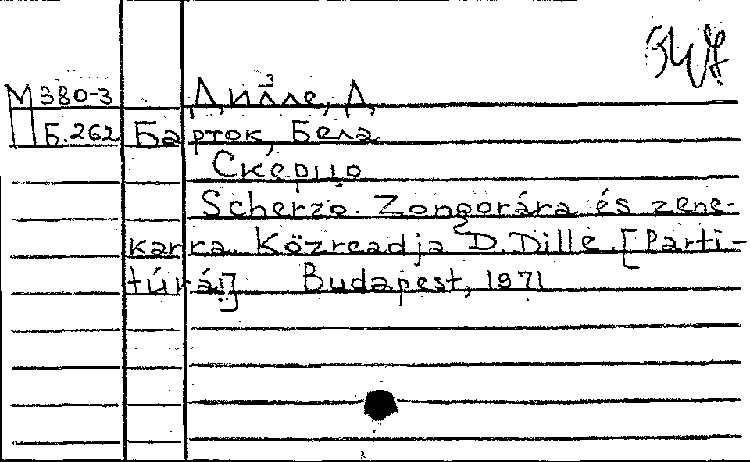 М380-3 Дилле, Д.
Б.262 Барток, Бела
Скерцо
Scherzo. Zongorára és zene-
karra. Közreadja D. Dille. [Parti-
túrái] Budapest, 1971